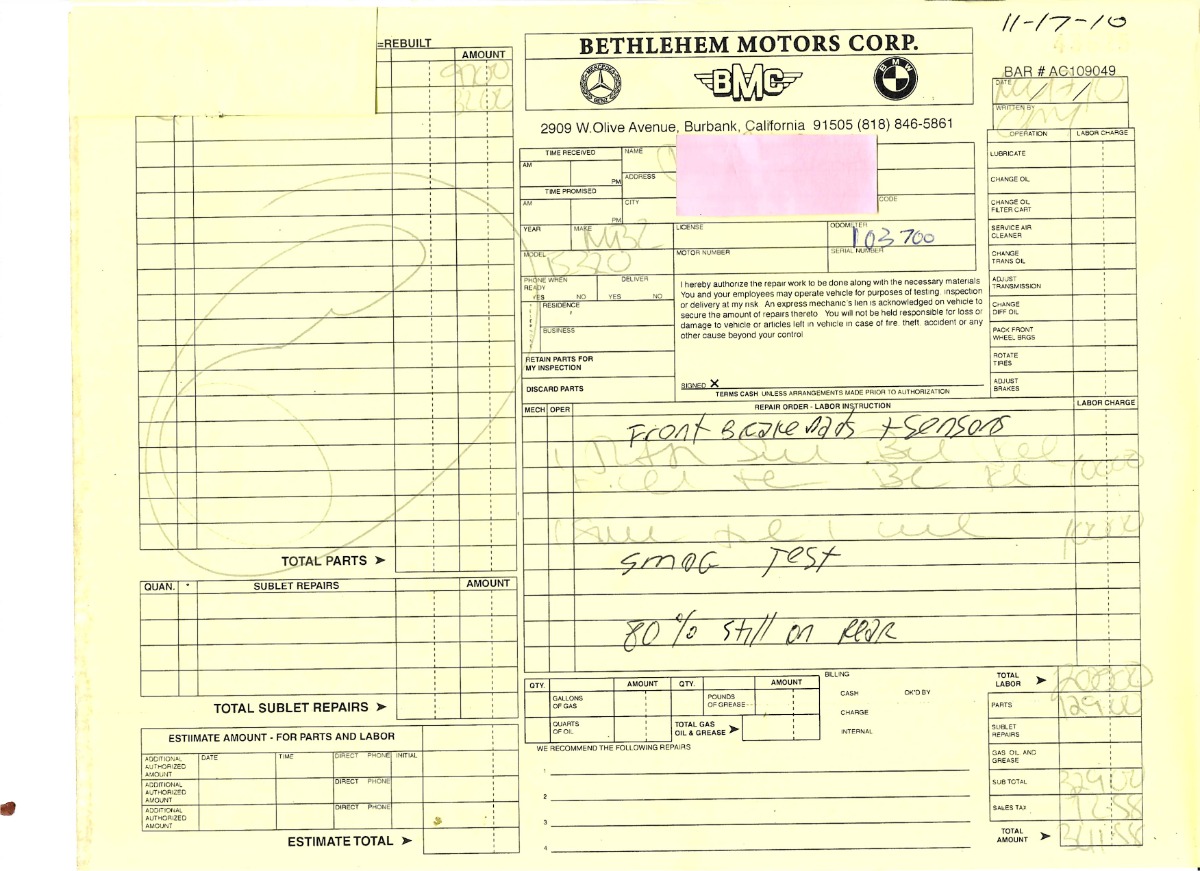 11-17-10
=REBUILT
AMOUNT
BETHLEHEM MOTORS CORP.
MERCEDES BENZ
BMC
BMW
BAR # AC109049
2909 W.Olive Avenue, Burbank, California 91505 (818) 846-5861
DATE
WRITTEN BY
OPERATION LABOR CHARGE
LUBRICATE
CHANGE OIL
CHANGE OIL
FILTER CART
SERVICE AIR
CLEANER
CHANGE
TRANS OIL
ADJUST
TRANSMISSION
CHANGE
DIFF OIL
PACK FRONT
WHEEL BRGS
ROTATE
TIRES
ADJUST
BRAKES
TIME RECEIVED
AM
PM
TIME PROMISED
AM
PM
NAME
ADDRESS
CITY
CODE
YEAR MAKE
LICENSE
ODOMETER
103700
MODEL
MOTOR NUMBER
SERIAL NUMBER
PHONE WHEN
READY
YES NO
DELIVER
YES NO
RESIDENCE
BUSINESS
RETAIN PARTS FOR
MY INSPECTION
DISCARD PARTS
I hereby authorize the repair work to be done along with the necessary materials
You and your employees may operate vehicle for purposes of testing, inspection
or delivery at my risk An express mechanic's lien is acknowledged on vehicle to
secure the amount of repairs thereto You will not be held responsible for loss or
damage to vehicle or articles left in vehicle in case of fire, theft, accident or any
other cause beyond your control
SIGNED X
TERMS CASH UNLESS ARRANGEMENTS MADE PRIOR TO AUTHORIZATION
MECH OPER REPAIR ORDER - LABOR INSTRUCTION LABOR CHARGE
Front Brake Pads + Sensors
100 00
100 00
Smog Test
80% still on Rear
TOTAL PARTS
QUAN. * SUBLET REPAIRS AMOUNT
TOTAL SUBLET REPAIRS
ESTIIMATE AMOUNT - FOR PARTS AND LABOR
ADDITIONAL
AUTHORIZED
AMOUNT
DATE TIME DIRECT PHONE INITIAL
ADDITIONAL
AUTHORIZED
AMOUNT
DIRECT PHONE
ADDITIONAL
AUTHORIZED
AMOUNT
DIRECT PHONE
ESTIMATE TOTAL
QTY. AMOUNT QTY. AMOUNT
GALLONS
OF GAS
POUNDS
OF GREASE
QUARTS
OF OIL
TOTAL GAS
OIL & GREASE
BILLING
CASH OK'D BY
CHARGE
INTERNAL
WE RECOMMEND THE FOLLOWING REPAIRS
1
2
3
4
TOTAL
LABOR
200 00
PARTS
129 00
SUBLET
REPAIRS
GAS OIL AND
GREASE
SUB TOTAL
329 00
SALES TAX
12 58
TOTAL
AMOUNT
341 58